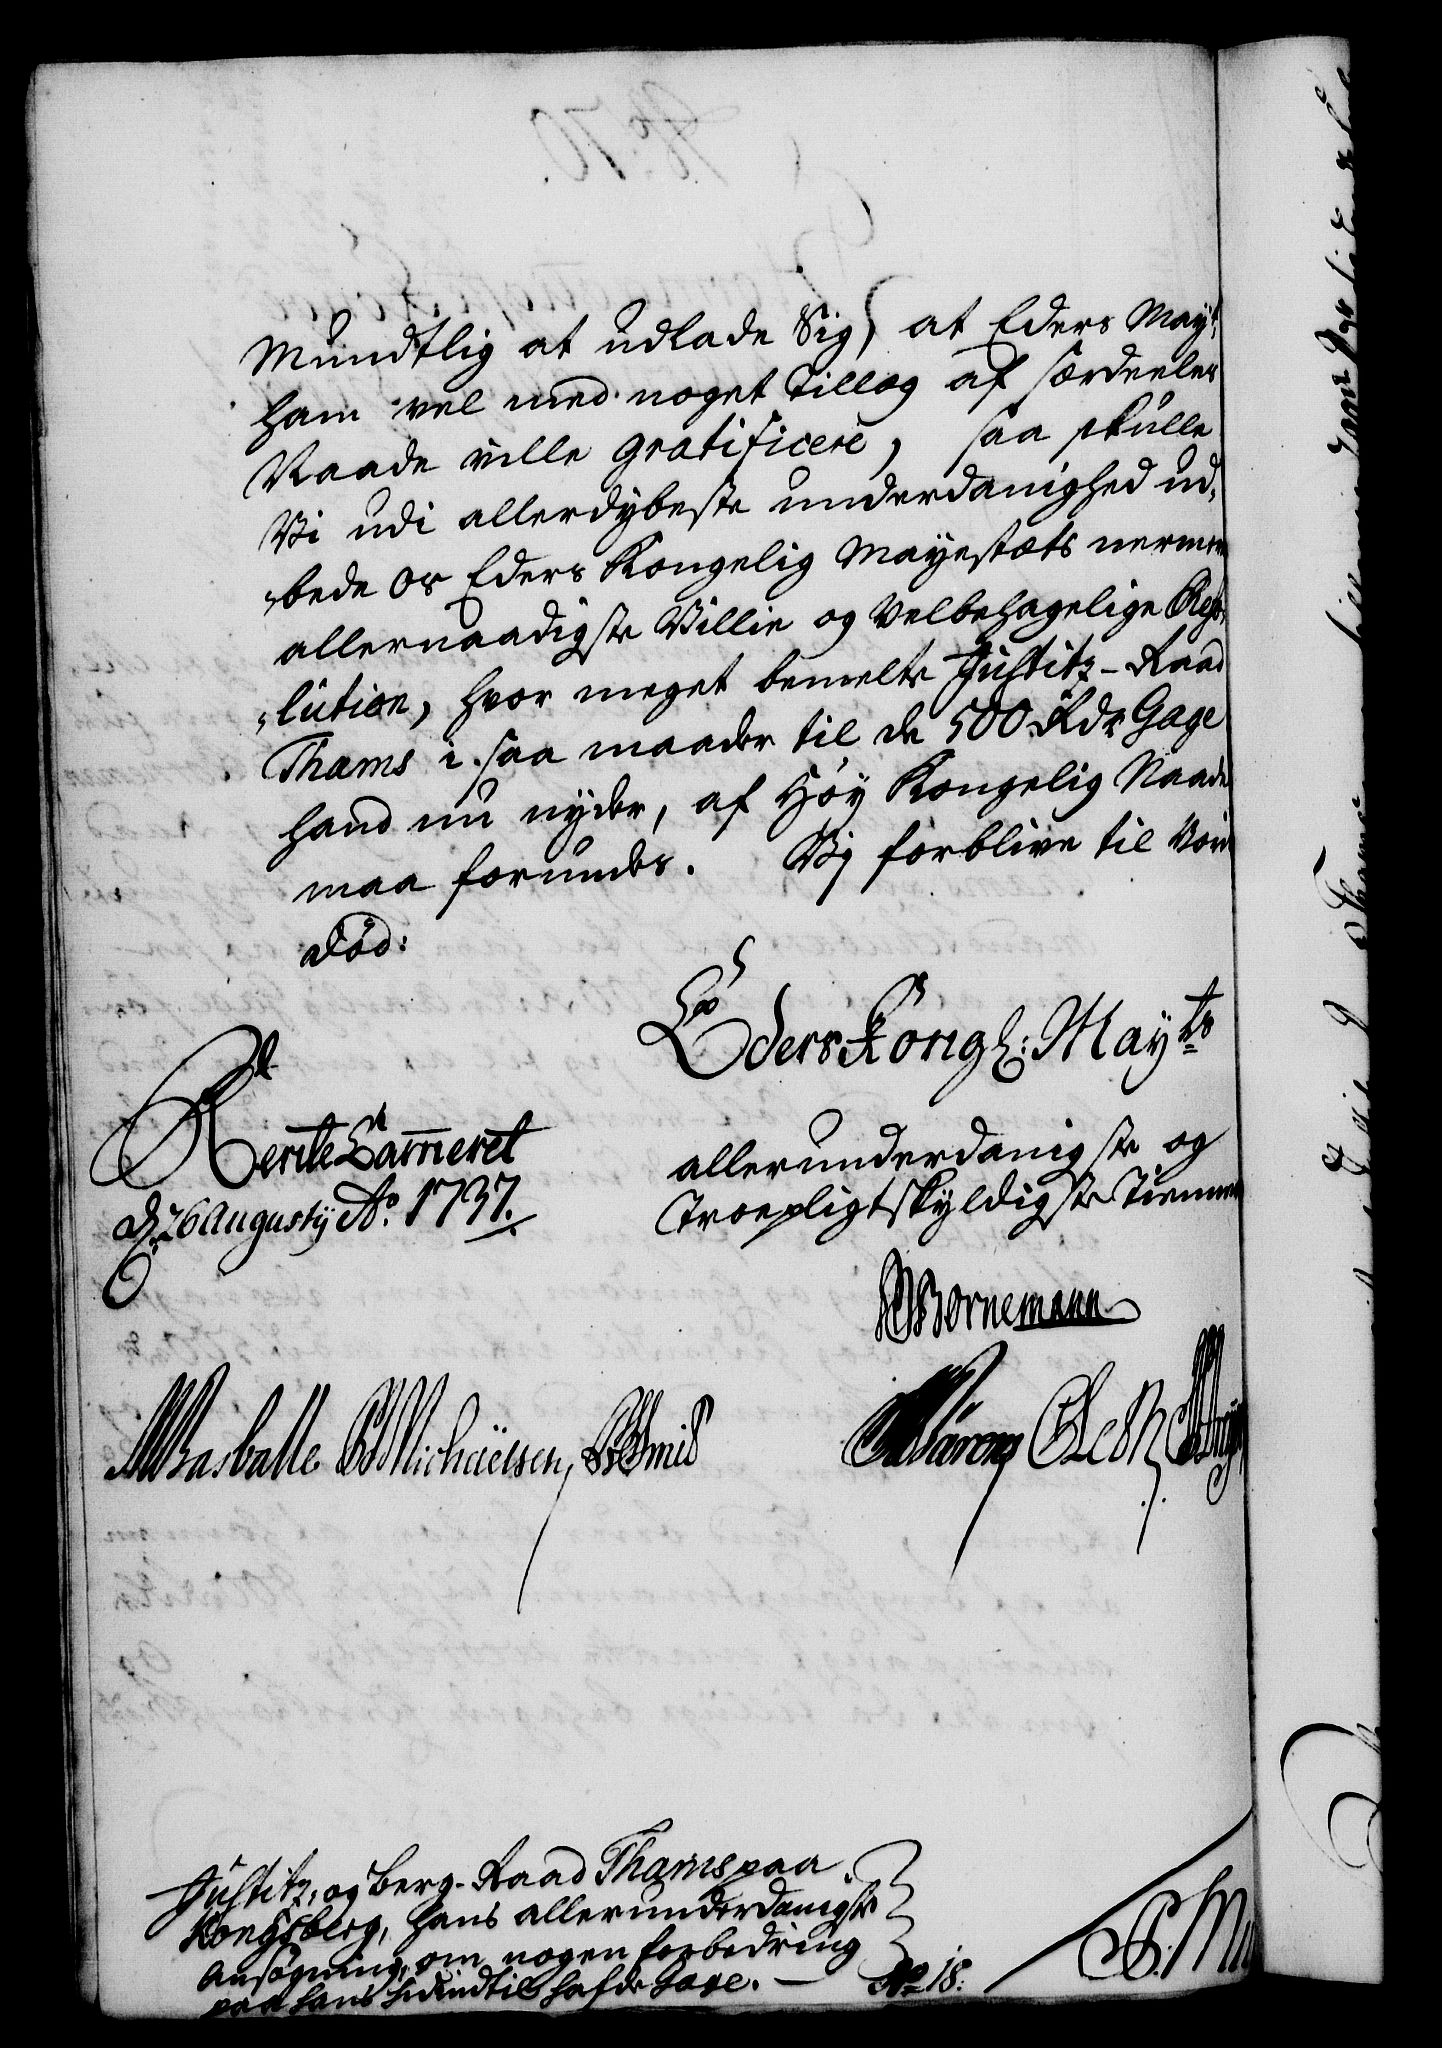 Mundtlig at udlade Sig, at Eders Mayt:
ham vel med noget Tillæg af særdeeles
Naade ville gratificere, saa skulle
Vi udi allerdybeste underdanighed ud,
,bede os Eders Kongelig Mayestæts nermere
allernaadigste Villie og Velbehagelige Reso,
,lution, hvor meget bemelte Justitz-Raad
Thams i saa maader til de 500 Rdr Gage
hand nu nyder, af Høy Kongelig Naade
maa forundes. Vij forblive til Voris
Død:
Eders Kongl: Mayts
Rente Cammeret
d. 26 Augustij Ao. 1737.
allerunderdanigste og
Troepligtskyldigste Tienere
Bornemann
Basballe Michaelsen,
Justitz, og Berg-Raad Thams paa
Kongsberg, hans allerunderdanigste
Ansøgning, om nogen forbedring
paa hans hidindtil hafde Gage. —
No 18.